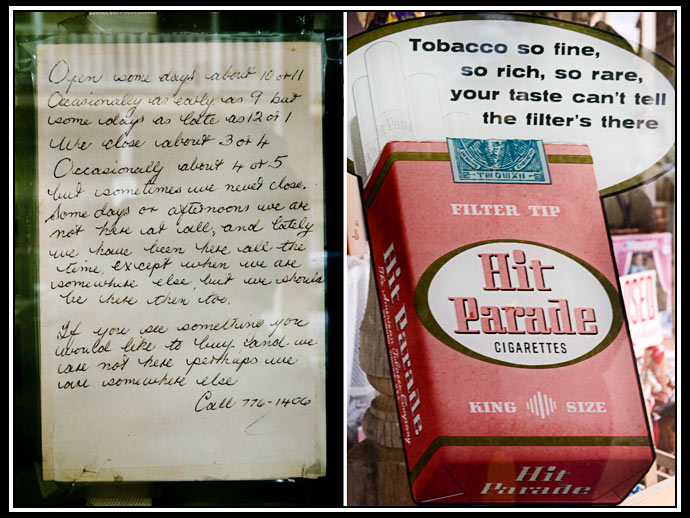 Open some days about 10 or 11
Occasionally as early as 9 but
some days as late as 12 or 1
We close about 3 or 4
Occasionally about 4 or 5
but sometimes we never close.
Some days or afternoons we are
not here at all, and lately
we have been here all the
time, except when we are
somewhere else, but we should
be here then too.
If you see something you
would like to buy and we
are not here perhaps we
are somewhere else
Call 776-1406
Tobacco so fine,
so rich, so rare,
your taste can't tell
the filter's there
Hit Parade
FILTER TIP
Hit
Parade
CIGARETTES
KING SIZE
Hit Parade
The American Tobacco Company
Hit
Parade